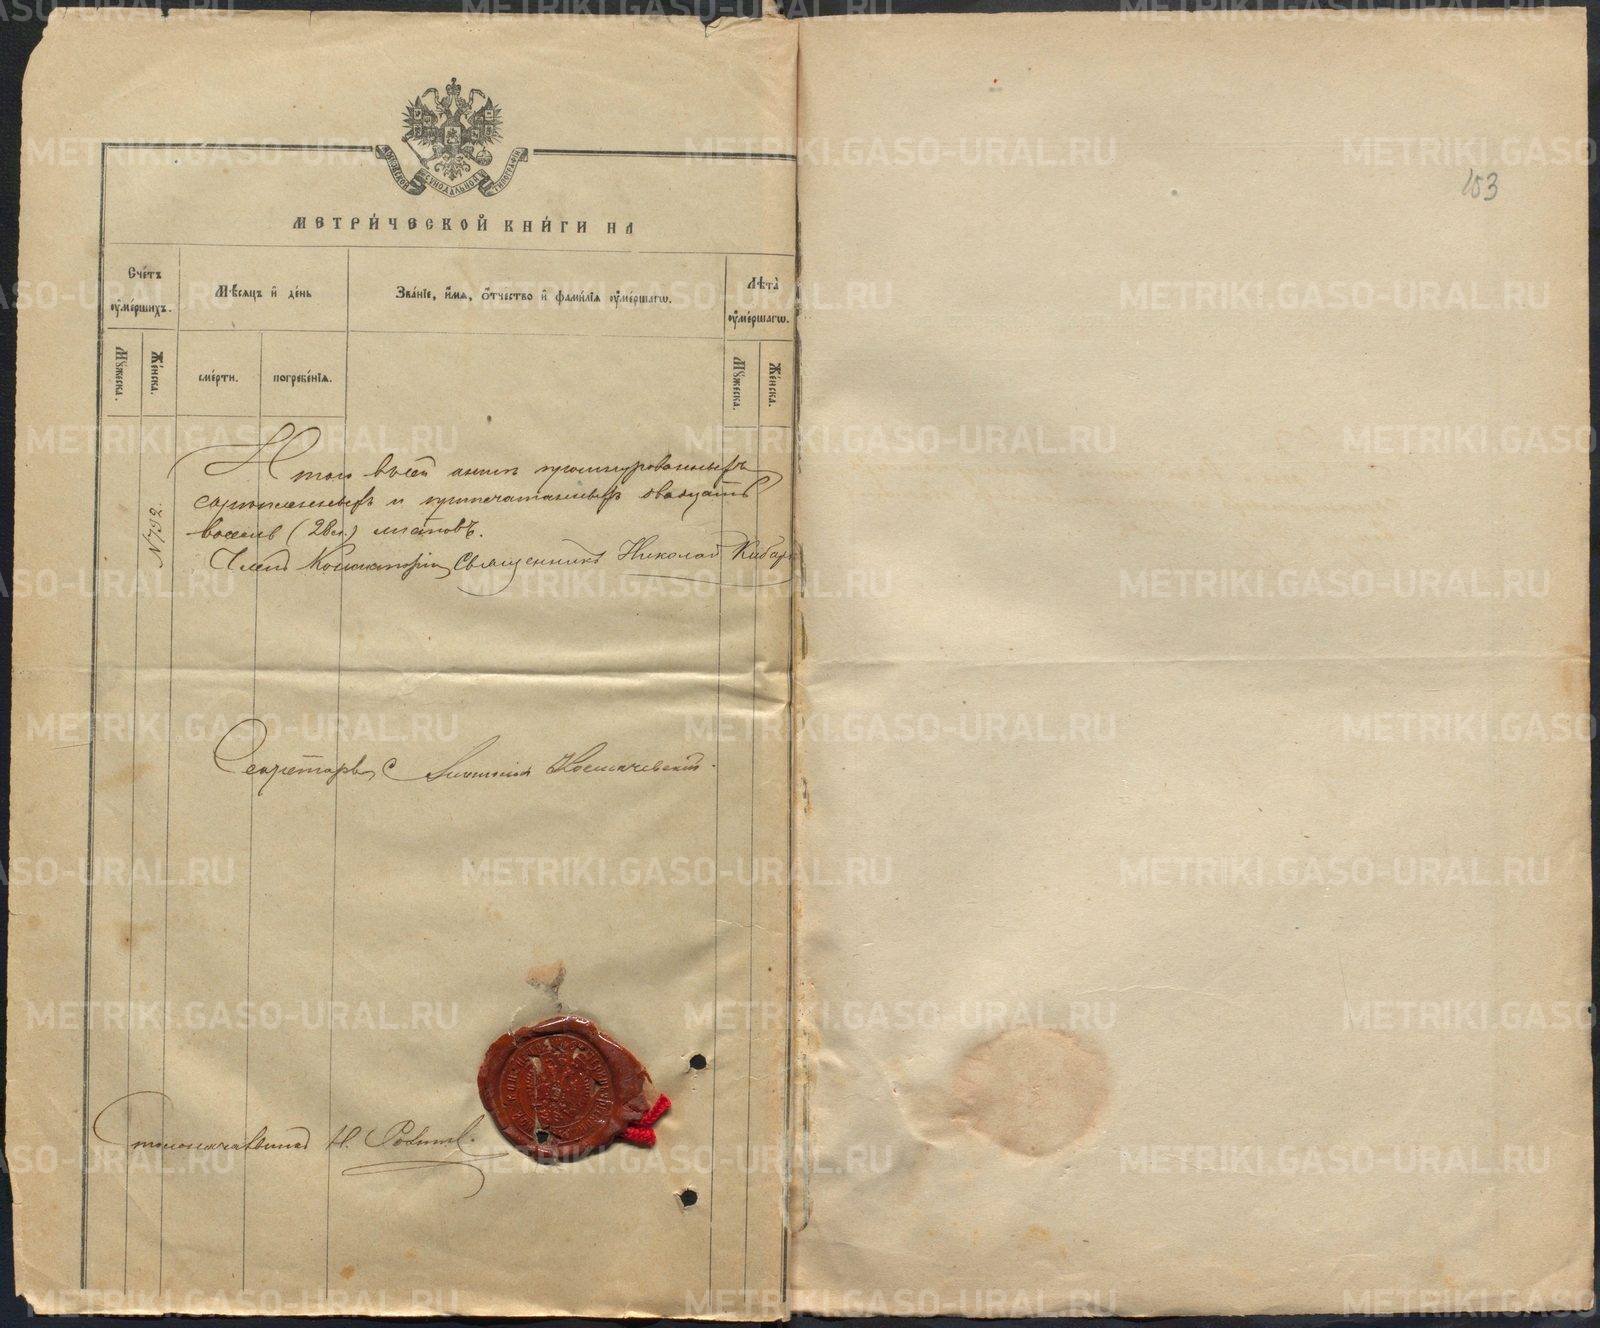 МОСКОВСКОЙ СѴНОДАЛЬНОЙ ТИПОГРАФІИ
МЕТРИ́ЧЕСКОЙ КНИ́ГИ НА
Сче́тъ ᲂу҆ме́ршихъ.
Мѣ́сяцъ и҆ де́нь
Зва́нїе, и҆́мя, ѻ҆́тчество и҆ фами́лїя ᲂу҆ме́ршагѡ.
Лѣ́та ᲂу҆ме́ршагѡ.
Мꙋ́жеска.
Же́нска.
сме́рти.
погребе́нїя.
Мꙋ́жеска.
Же́нска.
№ 792.
Итого въ сей книгѣ пронумерованныхъ
скрѣпленныхъ и припечатанныхъ двадцать
восемь (28 л.) листовъ.
Членъ Консисторіи, Священникъ Николай
Секретарь,
Столоначальникъ Н.
153
METRIKI.GASO-URAL.RU